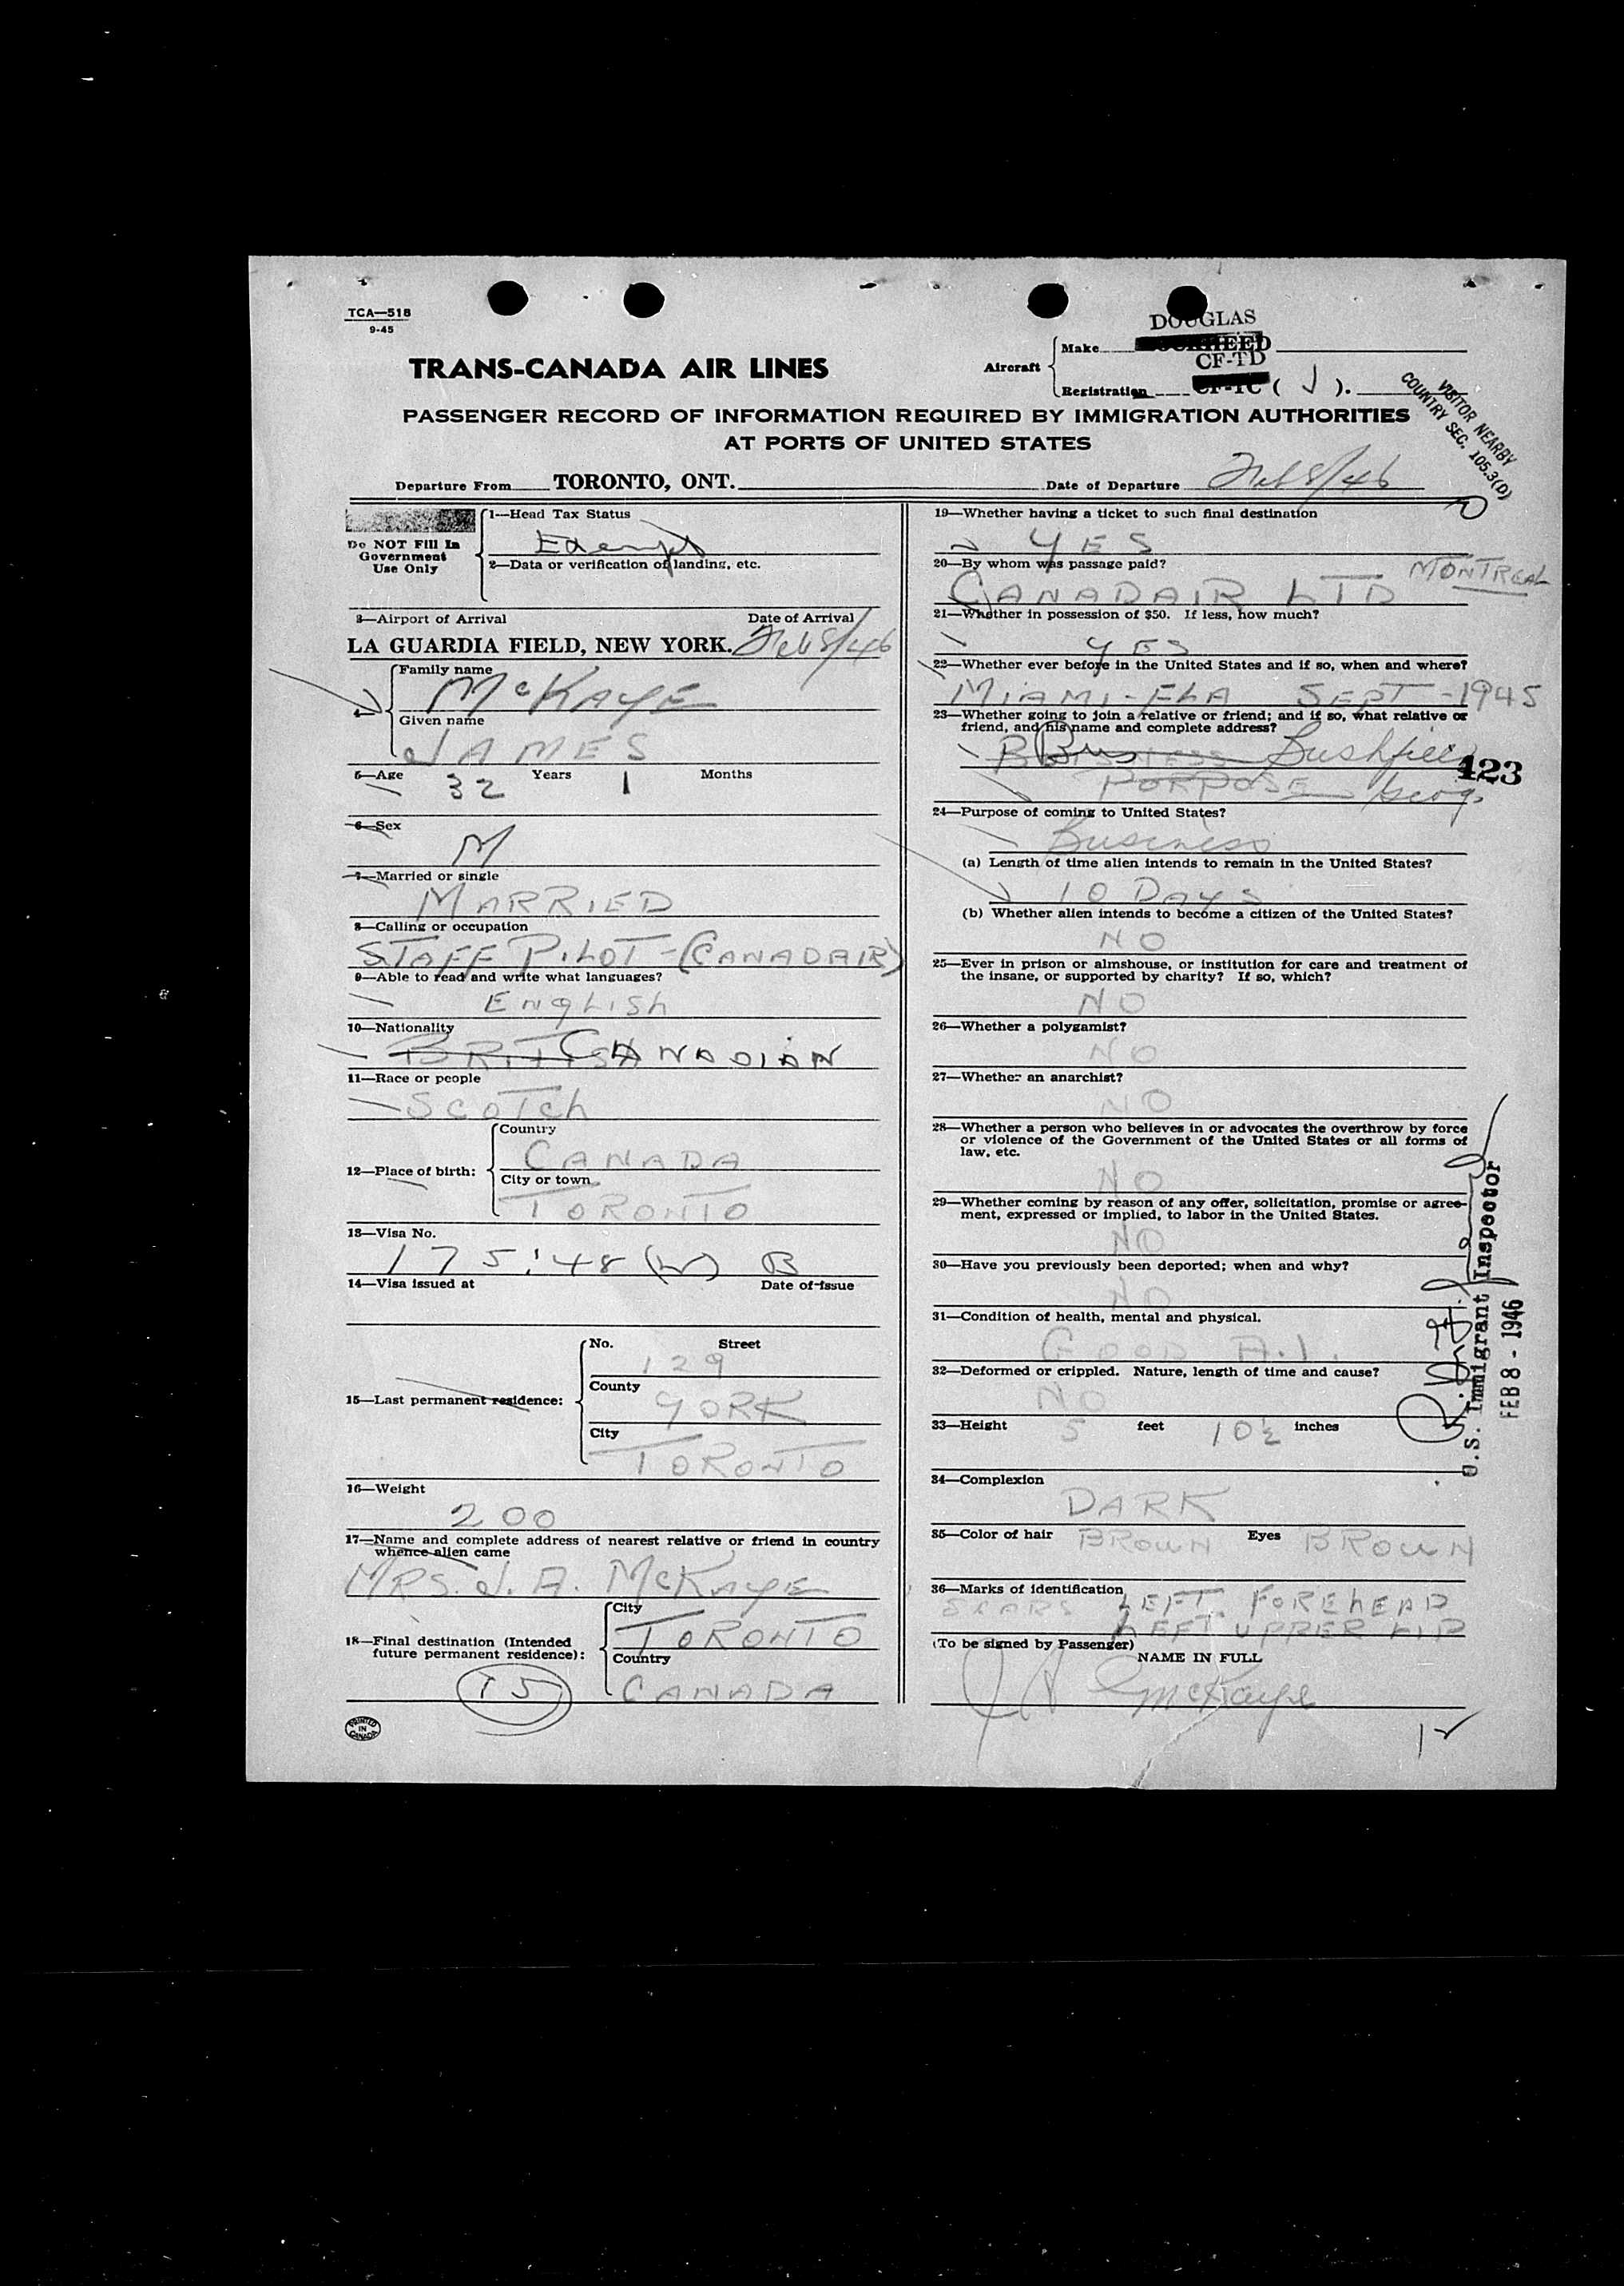 TCA—518
9-45
TRANS-CANADA AIR LINES
DOUGLAS
Aircraft
Make
CF-TD
Registration CF-TC ( J ).
VISITOR NEARBY
COUNTRY SEC. 105.3(D)
PASSENGER RECORD OF INFORMATION REQUIRED BY IMMIGRATION AUTHORITIES
AT PORTS OF UNITED STATES
Departure From TORONTO, ONT.
Date of Departure Feb 8/46
Do NOT Fill In
Government
Use Only
1—Head Tax Status
Exempt
2—Data or verification of landing, etc.
3—Airport of Arrival Date of Arrival
LA GUARDIA FIELD, NEW YORK. Feb 8/46
4—
Family name
McKAYE
Given name
JAMES
5—Age 32 Years 1 Months
6—Sex
M
7—Married or single
MARRIED
8—Calling or occupation
STAFF PILOT - (CANADAIR)
9—Able to read and write what languages?
ENGLISH
10—Nationality
BRITISH CANADIAN
11—Race or people
SCOTCH
12—Place of birth:
Country
CANADA
City or town
TORONTO
13—Visa No.
175:48 (W) B
14—Visa issued at Date of issue
15—Last permanent residence:
No. Street
129
County
YORK
City
TORONTO
16—Weight
200
17—Name and complete address of nearest relative or friend in country
whence alien came
MRS. J. A. McKAYE
18—Final destination (Intended
future permanent residence):
City
TORONTO
Country
CANADA
PRINTED
IN
CANADA
19—Whether having a ticket to such final destination
YES
20—By whom was passage paid?
CANADAIR LTD MONTREAL
21—Whether in possession of $50. If less, how much?
YES
22—Whether ever before in the United States and if so, when and where?
MIAMI - FLA SEPT - 1945
23—Whether going to join a relative or friend; and if so, what relative or
friend, and his name and complete address?
BUSINESS Bushfield
PURPOSE Georg.
423
24—Purpose of coming to United States?
Business
(a) Length of time alien intends to remain in the United States?
10 DAYS
(b) Whether alien intends to become a citizen of the United States?
NO
25—Ever in prison or almshouse, or institution for care and treatment of
the insane, or supported by charity? If so, which?
NO
26—Whether a polygamist?
NO
27—Whether an anarchist?
NO
28—Whether a person who believes in or advocates the overthrow by force
or violence of the Government of the United States or all forms of
law, etc.
NO
29—Whether coming by reason of any offer, solicitation, promise or agree-
ment, expressed or implied, to labor in the United States.
NO
30—Have you previously been deported; when and why?
NO
31—Condition of health, mental and physical.
GOOD A.1.
32—Deformed or crippled. Nature, length of time and cause?
NO
33—Height 5 feet 10½ inches
34—Complexion
DARK
35—Color of hair BROWN Eyes BROWN
36—Marks of identification
SCARS LEFT FOREHEAD
LEFT UPPER LIP
(To be signed by Passenger)
NAME IN FULL
J A McKaye
U.S. Immigrant Inspector
FEB 8 - 1946